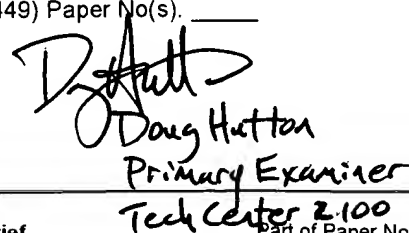 449) Paper No(s). ______
Doug Hutton
Primary Examiner
Tech Center 2100
rief Part of Paper No